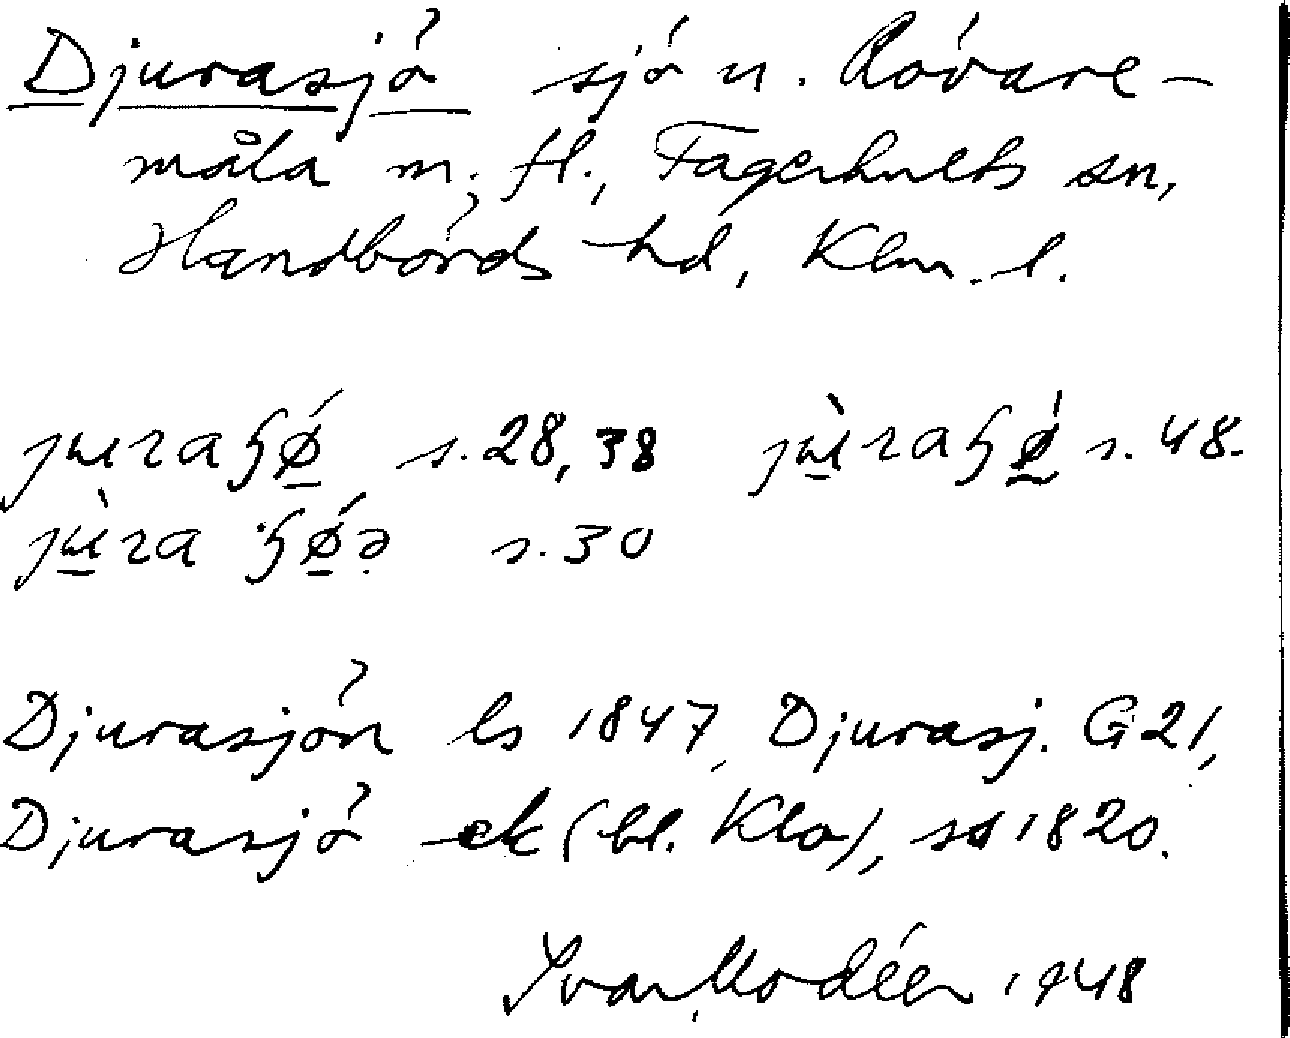 Djurasjö sjö n. Rövare-
måla m. fl., Fagerhults sn,
Handbörds hd, Klm. l.
s. 28, 38 s. 48.
s. 30
Djurasjön ls 1847, Djurasj. G 21,
Djurasjö ek (bl. Kla), ss 1820.
Ivar Modéer 1948